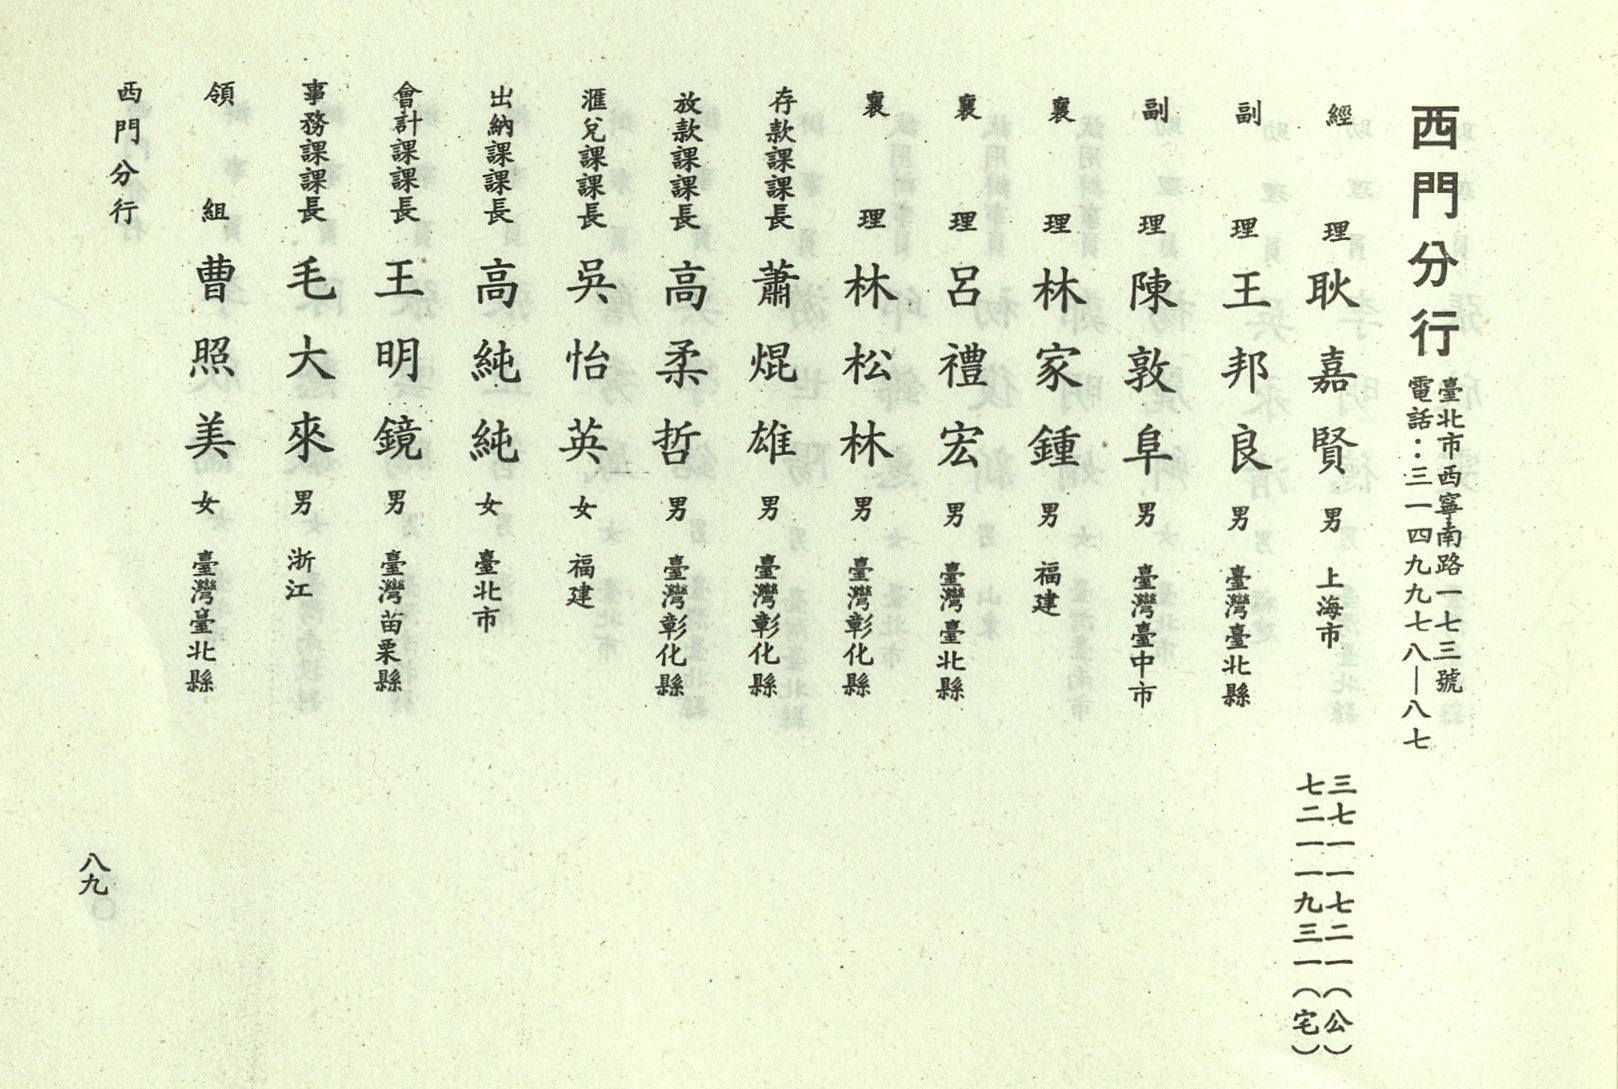 西門分行
臺北市西寧南路一七三號
電話：三一四九九七八—八七
經理 耿嘉賢 男 上海市 三七一一七二一（公）
七二一一九三一（宅）
副理 王邦良 男 臺灣臺北縣
副理 陳敦阜 男 臺灣臺中市
襄理 林家鍾 男 福建
襄理 呂禮宏 男 臺灣臺北縣
襄理 林松林 男 臺灣彰化縣
存款課課長 蕭焜雄 男 臺灣彰化縣
放款課課長 高柔哲 男 臺灣彰化縣
滙兌課課長 吳怡英 女 福建
出納課課長 高純純 女 臺北市
會計課課長 王明鏡 男 臺灣苗栗縣
事務課課長 毛大來 男 浙江
領組 曹照美 女 臺灣臺北縣
西門分行
八九